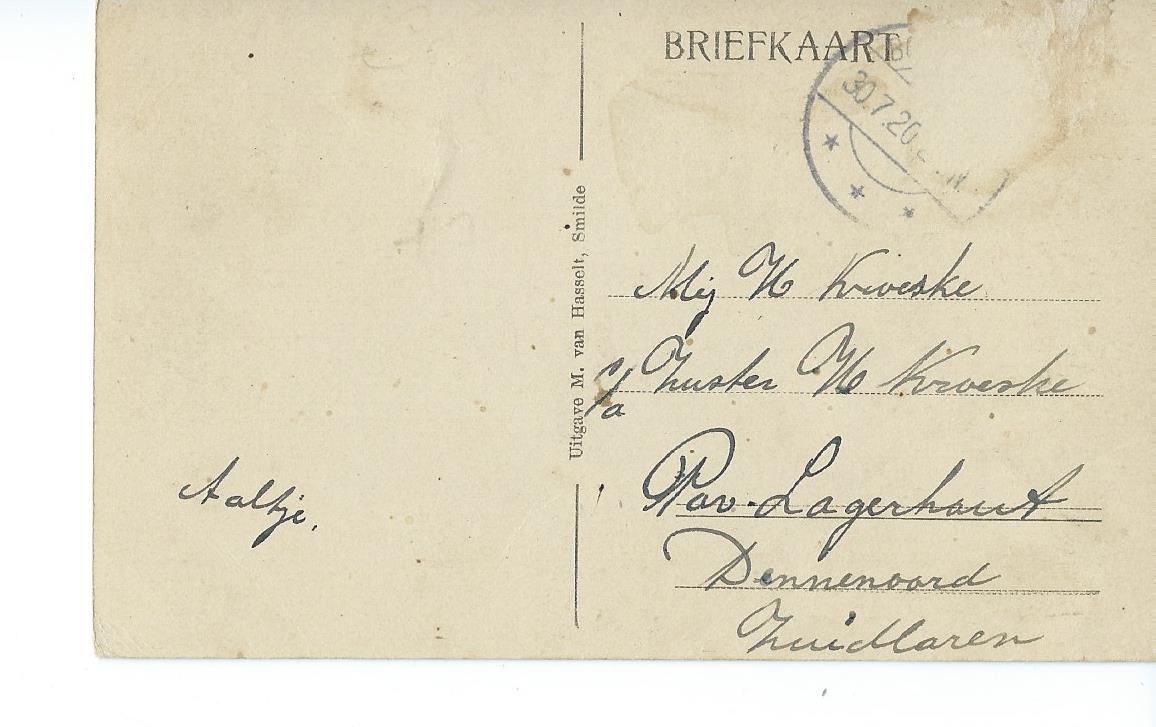 BRIEFKAART
30.7.20
Uitgave M. van Hasselt, Smilde
Mej H Kroeske
c/a Zuster H Kroeske
Pav. Lagerhout
Dennenoord
Zuidlaren
Aaltje.